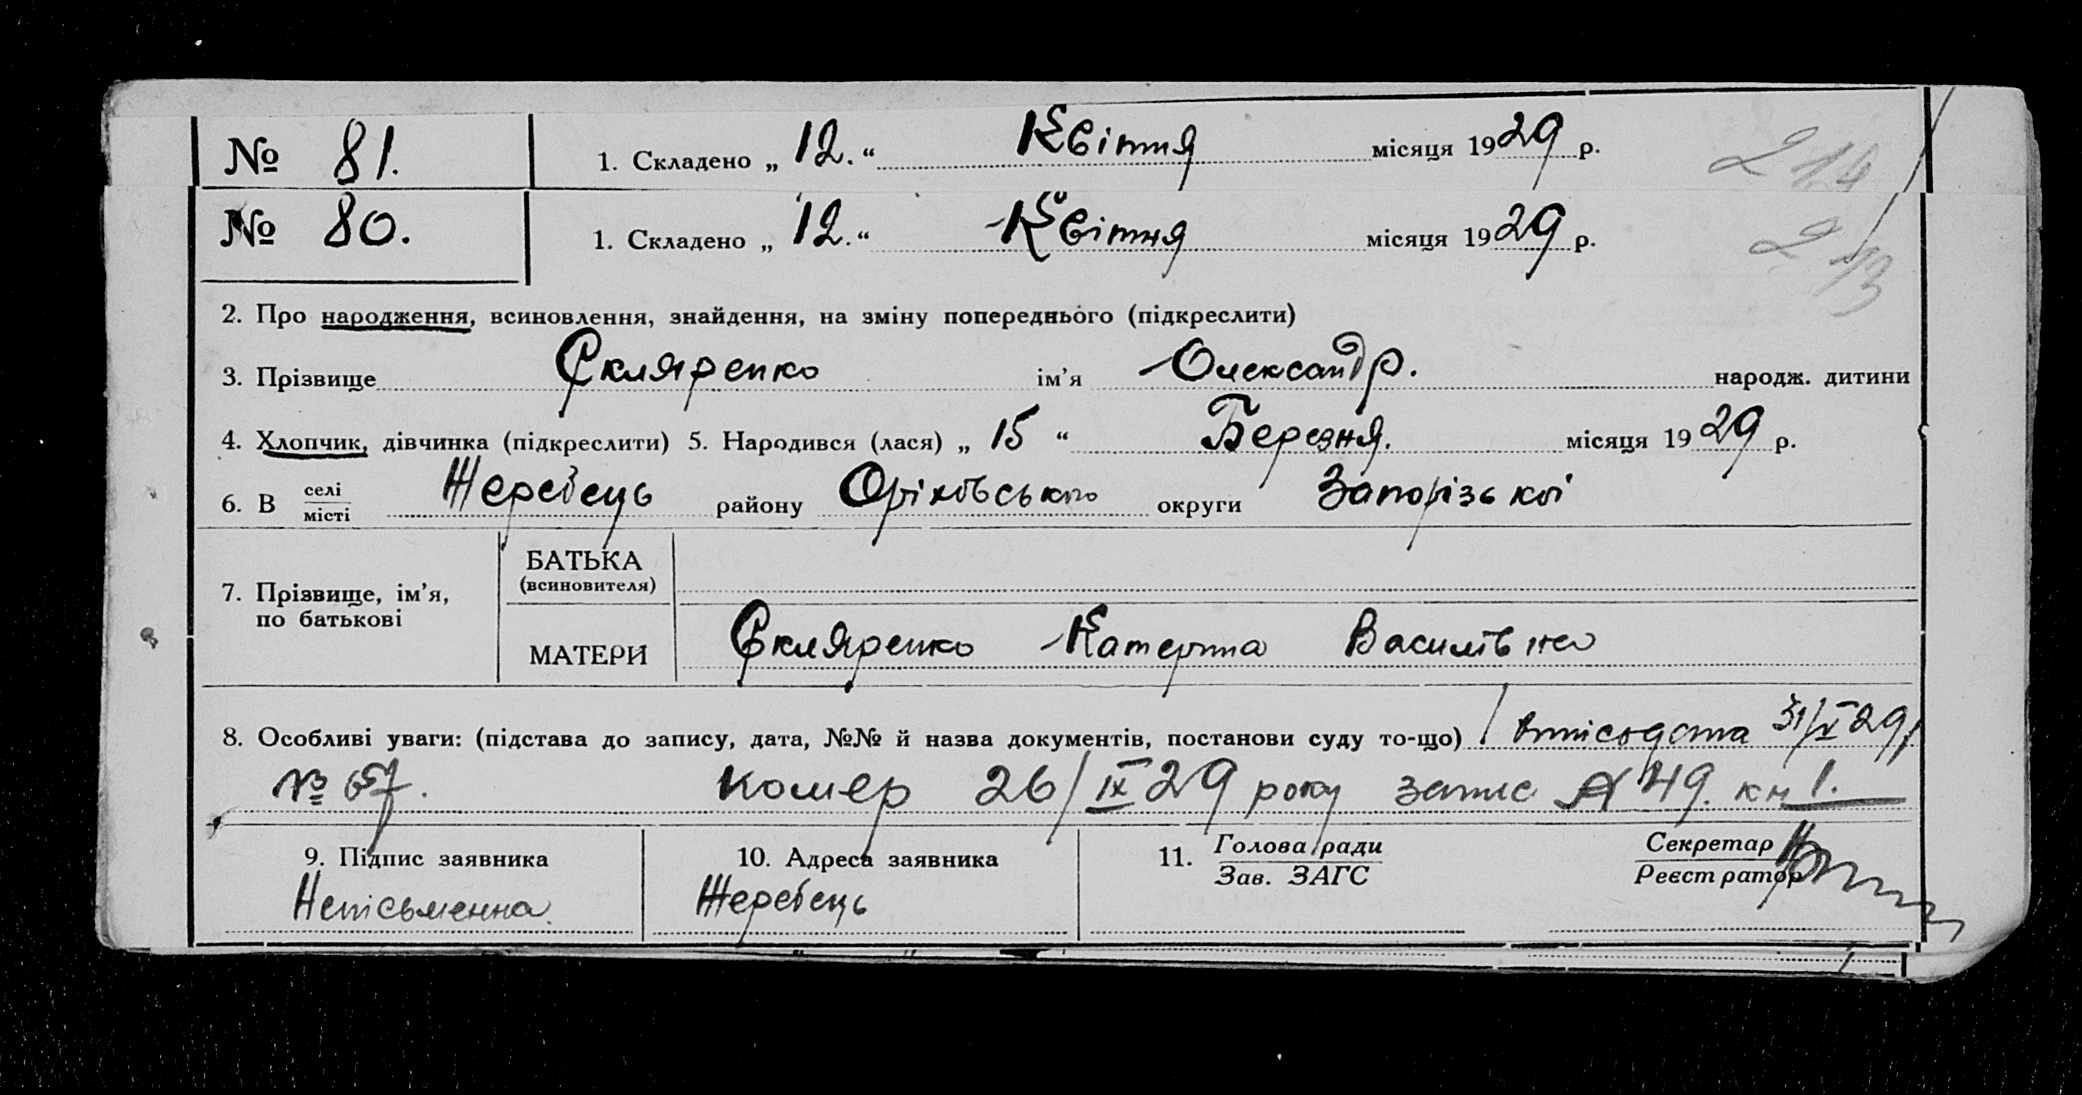 № 81. 1. Складено „ 12. “ Квітня місяця 1929 р. 214
№ 80. 1. Складено „ 12. “ Квітня місяця 1929 р. 213
2. Про народження, всиновлення, знайдення, на зміну попереднього (підкреслити)
3. Прізвище Скляренко ім’я Олександр. народж. дитини
4. Хлопчик, дівчинка (підкреслити) 5. Народився (лася) „ 15 “ Березня. місяця 1929 р.
6. В селі місті Жеребець району Оріховського округи Запорізької
7. Прізвище, ім’я, по батькові
БАТЬКА
(всиновителя)
МАТЕРИ Скляренко Катерина Василівна
8. Особливі уваги: (підстава до запису, дата, №№ й назва документів, постанови суду то-що) 31/X 29
№ 67. номер 26/IX 29 року запис 49. кн 1.
9. Підпис заявника
Неписьменна.
10. Адреса заявника
Жеребець
11. Голова ради
Зав. ЗАГС
Секретар
Реєстратор